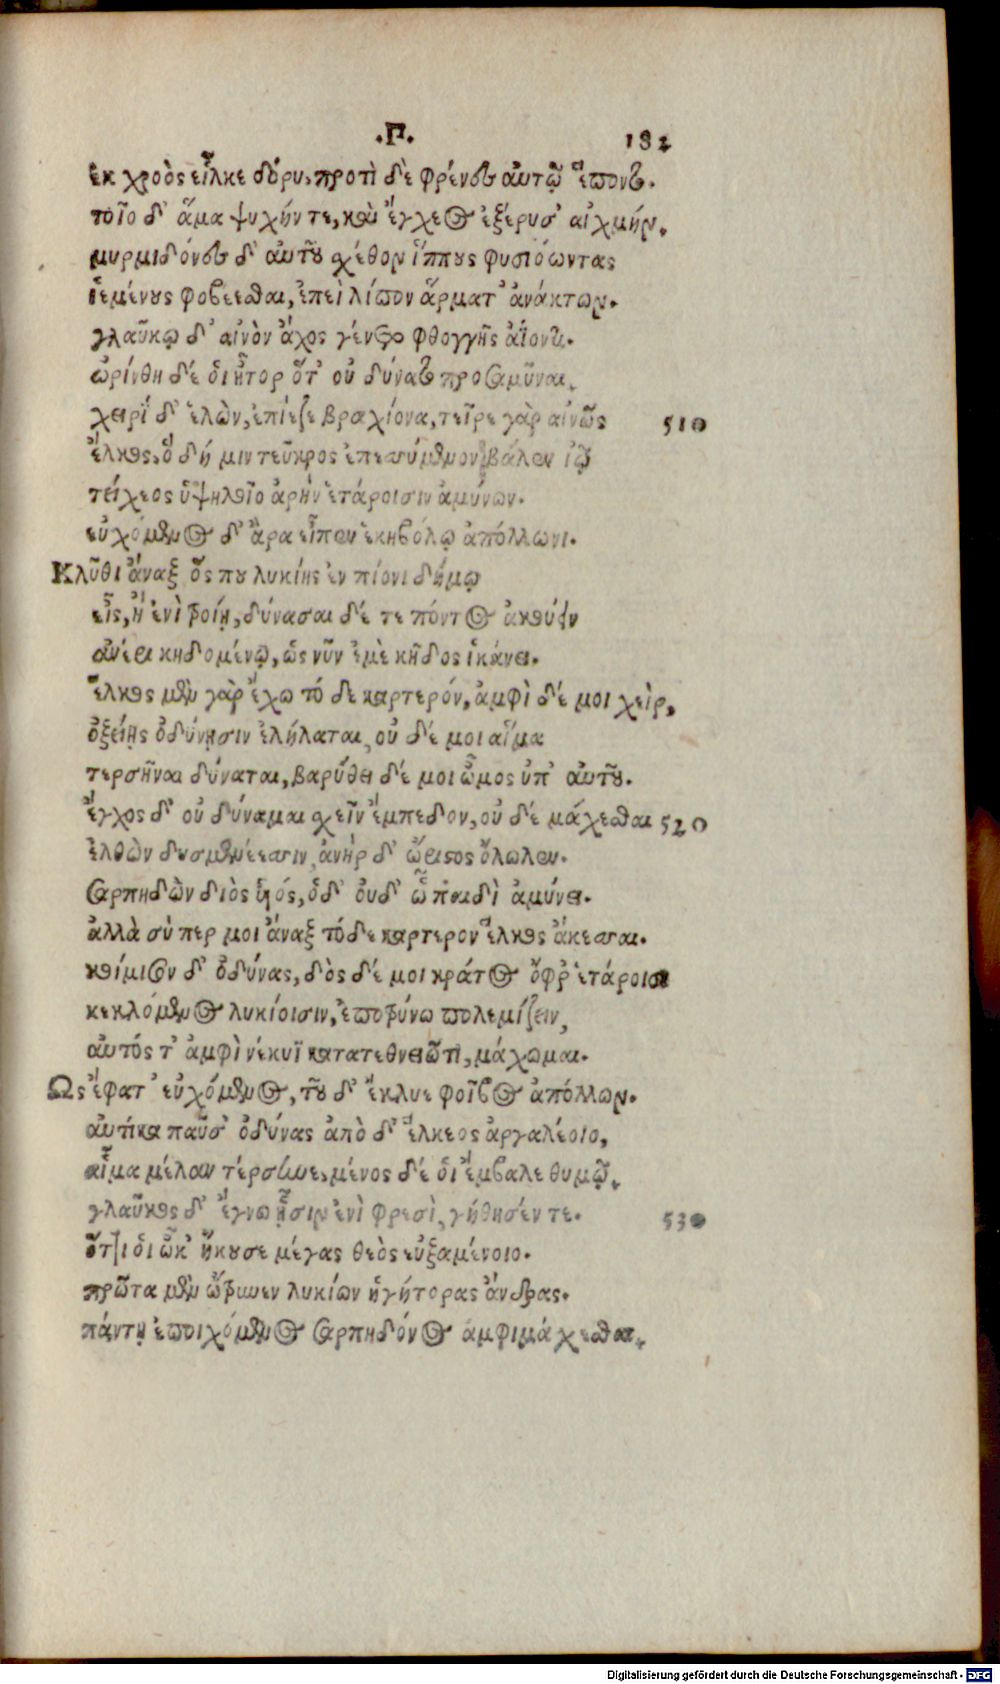 .Π. 132
ἐκ χροὸς εἷλκε δόρυ, προτὶ δὲ φρένες αὐτῷ ἕποντο.
τοῖο δ' ἅμα ψυχήν τε, καὶ ἔγχεος ἐξέρυσ' αἰχμήν.
μυρμιδόνες δ' αὐτοῦ σχέθον ἵππους φυσιόωντας
ἱεμένους φοβέεσθαι, ἐπεὶ λίπον ἅρματ' ἀνάκτων.
γλαύκῳ δ' αἰνὸν ἄχος γένετο φθογγῆς ἀΐοντι.
ὠρίνθη δέ οἱ ἦτορ ὅτ' οὐ δύνατο προσαμῦναι.
χειρὶ δ' ἑλὼν, ἐπίεζε βραχίονα, τεῖρε γὰρ αἰνῶς 510
ἕλκος, ὃ δή μιν τεῦκρος ἐπεσσύμενον βάλεν ἰῷ
τείχεος ὑψηλοῖο ἀρὴν ἑτάροισιν ἀμύνων.
εὐχόμενος δ' ἄρα εἶπεν ἑκηβόλῳ ἀπόλλωνι.
Κλῦθι ἄναξ ὅς που λυκίης ἐν πίονι δήμῳ
εἶς, ἢ ἐνὶ τροίῃ, δύνασαι δέ τε πάντος ἀκούειν
ἀνέρι κηδομένῳ, ὡς νῦν ἐμὲ κῆδος ἱκάνει.
ἕλκος μὲν γὰρ ἔχω τό δε καρτερόν, ἀμφὶ δέ μοι χεὶρ,
ὀξείῃς ὀδύνῃσιν ἐλήλαται, οὐ δέ μοι αἷμα
τερσῆναι δύναται, βαρύθει δέ μοι ὦμος ὑπ' αὐτοῦ.
ἔγχος δ' οὐ δύναμαι σχεῖν ἔμπεδον, οὐ δέ μάχεσθαι 520
ἐλθὼν δυσμενέεσσιν, ἀνὴρ δ' ὤριστος ὄλωλεν.
σαρπηδὼν διὸς ὑιός, ὁδ' οὐδ' ᾧ παιδὶ ἀμύνει.
ἀλλὰ σύ περ μοι ἄναξ τόδε καρτερον ἕλκος ἄκεσσαι.
κοίμισον δ' ὀδύνας, δὸς δέ μοι κράτος ὄφρ' ἑτάροισι
κεκλόμενος λυκίοισιν, ἐποτρύνω πολεμίζειν,
αὐτός τ' ἀμφὶ νέκυϊ κατατεθνειῶτι, μάχωμαι.
Ως ἔφατ' εὐχόμενος, τοῦ δ' ἔκλυε φοῖβος ἀπόλλων.
αὐτίκα παῦσ' ὀδύνας ἀπὸ δ' ἕλκεος ἀργαλέοιο,
αἷμα μέλαν τέρσηνε, μένος δέ οἱ ἔμβαλε θυμῷ.
γλαῦκος δ' ἔγνω ᾗσιν ἐνὶ φρεσὶ, γήθησέν τε. 530
ὅττι οἱ ὦκ' ἤκουσε μέγας θεὸς εὐξαμένοιο.
πρῶτα μὲν ὤτρυνεν λυκίων ἡγήτορας ἄνδρας.
πάντῃ ἐποιχόμενος σαρπηδόνος ἀμφιμάχεσθαι.
Digitalisierung gefördert durch die Deutsche Forschungsgemeinschaft - DFG